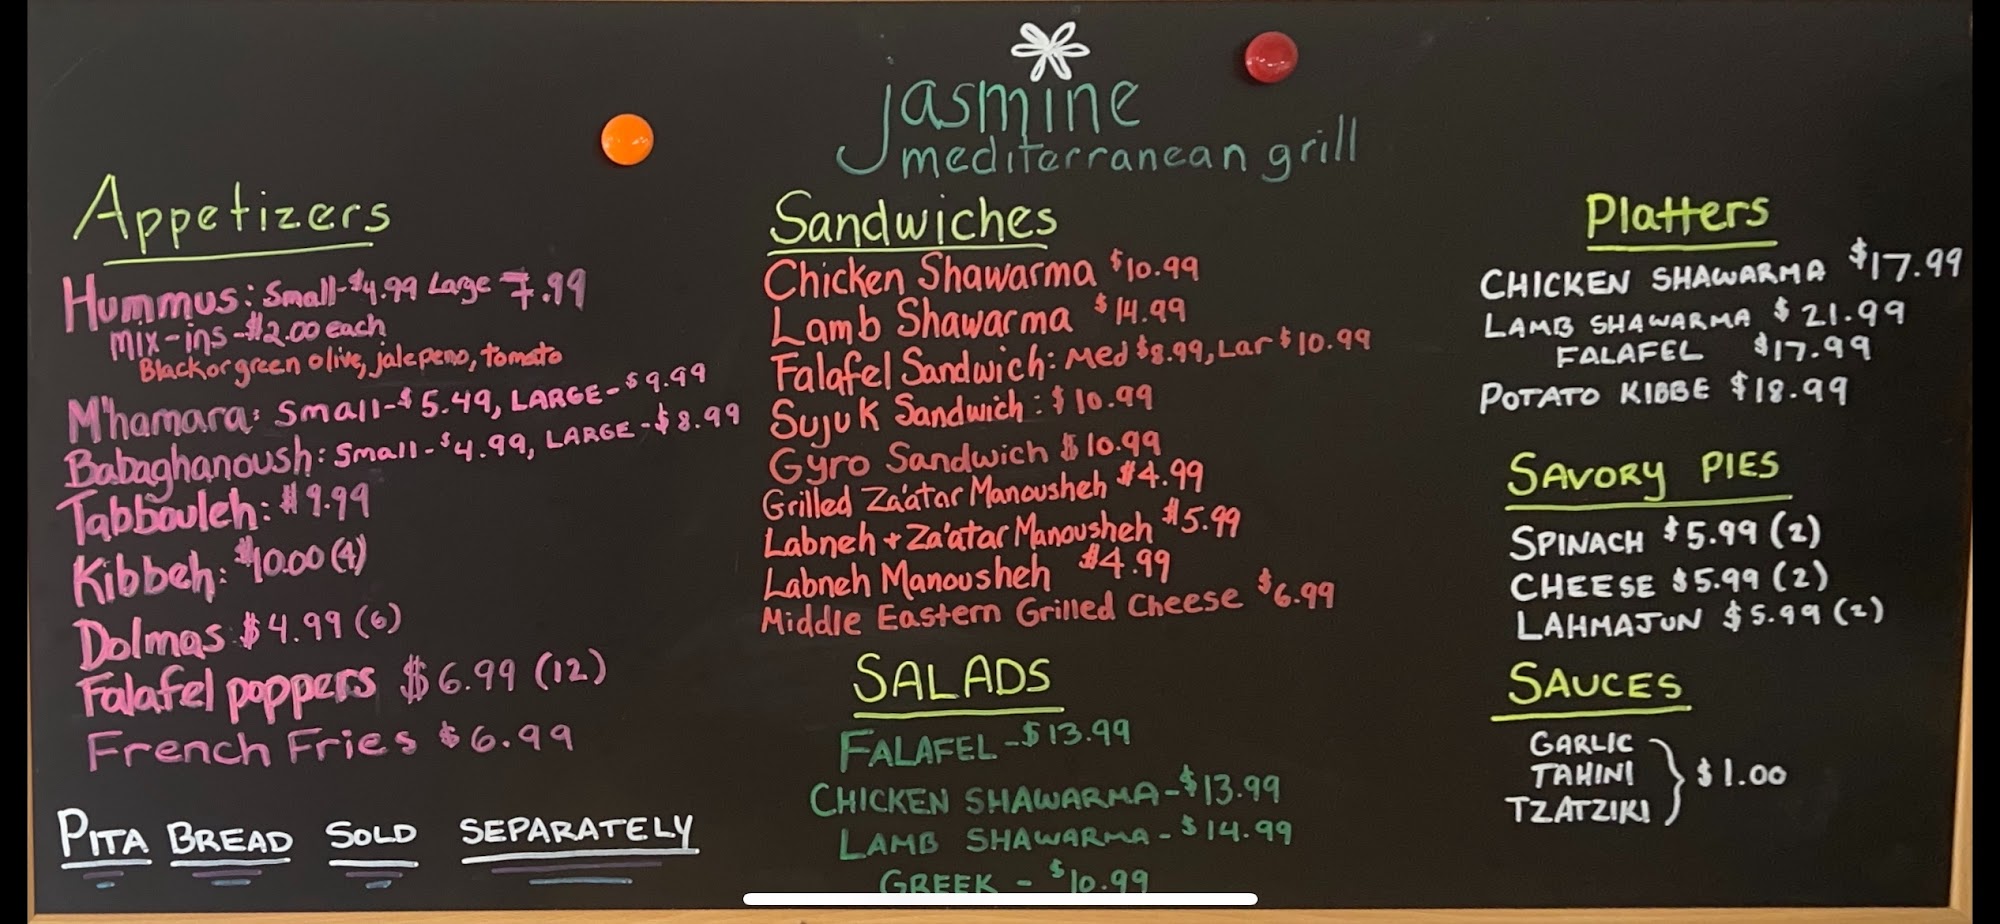 jasmine
mediterranean grill
Appetizers
Hummus: Small-$4.99 Large 7.99
mix-ins-$2.00 each
Black or green olive, jalepeno, tomato
M'hamara: Small-$5.49, LARGE-$9.99
Babaghanoush: Small-$4.99, LARGE-$8.99
Tabbouleh: $9.99
Kibbeh: $10.00 (4)
Dolmas $4.99 (6)
Falafel poppers $6.99 (12)
French Fries $6.99
PITA BREAD SOLD SEPARATELY
Sandwiches
Chicken Shawarma $10.99
Lamb Shawarma $14.99
Falafel Sandwich: Med $8.99, Lar $10.99
Sujuk Sandwich: $10.99
Gyro Sandwich $10.99
Grilled Za'atar Manousheh $4.99
Labneh + Za'atar Manousheh $5.99
Labneh Manousheh $4.99
Middle Eastern Grilled Cheese $6.99
SALADS
FALAFEL-$13.99
CHICKEN SHAWARMA-$13.99
LAMB SHAWARMA-$14.99
GREEK - $10.99
Platters
CHICKEN SHAWARMA $17.99
LAMB SHAWARMA $21.99
FALAFEL $17.99
POTATO KIBBE $18.99
SAVORY PIES
SPINACH $5.99 (2)
CHEESE $5.99 (2)
LAHMAJUN $5.99 (2)
SAUCES
GARLIC
TAHINI } $1.00
TZATZIKI